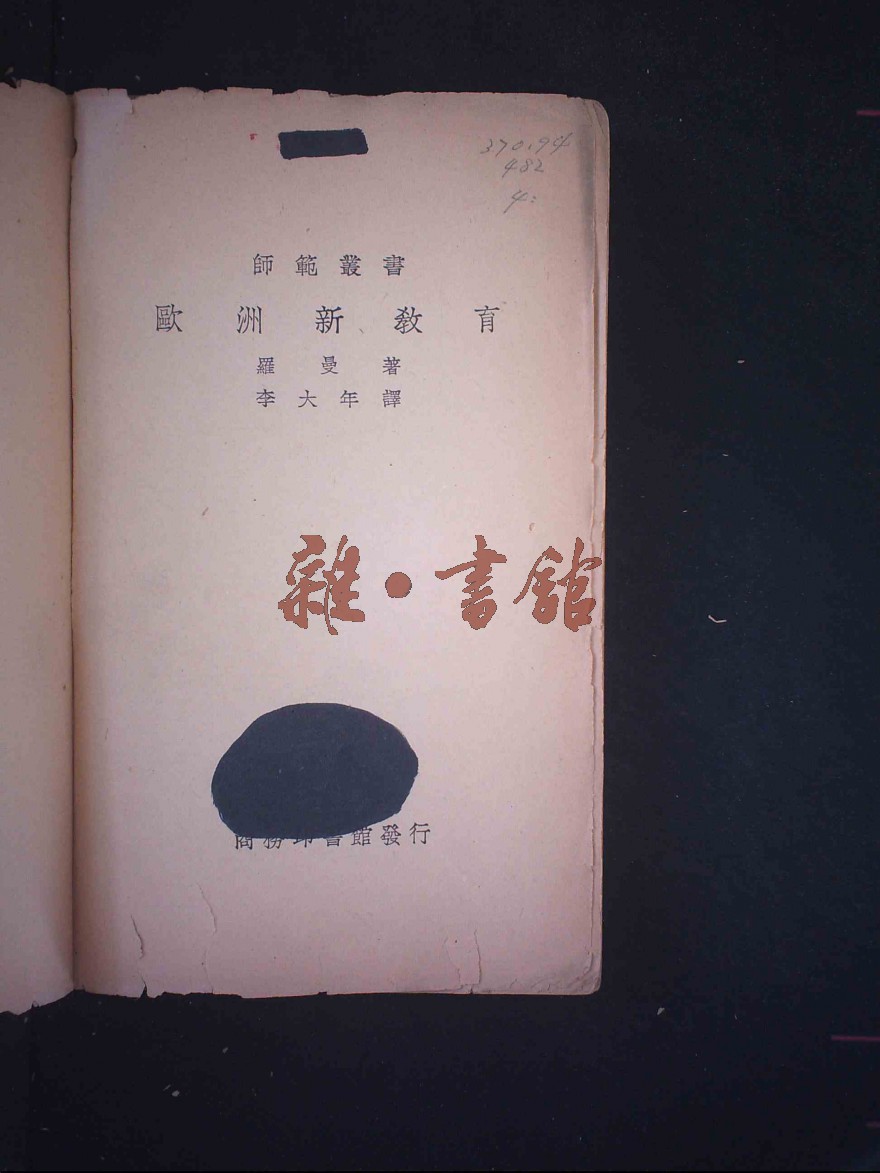 370.94
482
4:
師範叢書
歐洲新教育
羅曼著
李大年譯
雜·書館
商務印書館發行